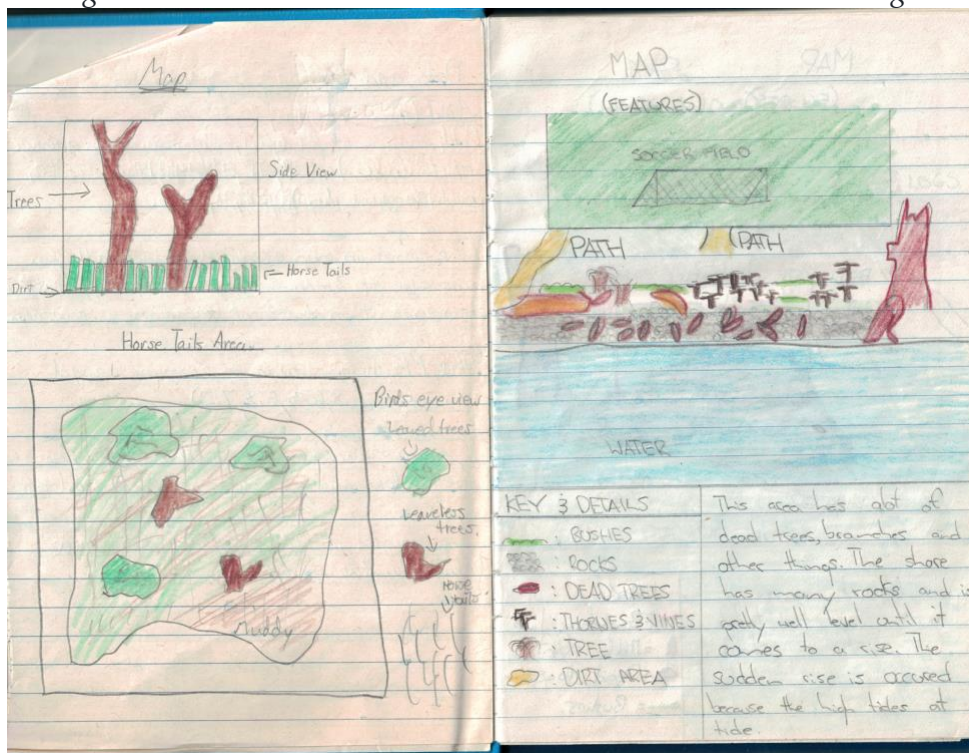 Map
Side View
Trees
Horse Tails
Dirt
Horse Tails Area
Birds eye view
Leaved trees
Leaveless
trees
Horse
tails
Muddy
MAP
(FEATURES)
SOCCER FIELD
PATH
PATH
WATER
KEY & DETAILS
: BUSHES
: ROCKS
: DEAD TREES
: THORNES & VINES
: TREE
: DIRT AREA
This area has alot of
dead trees, branches and
other things. The shore
has many rocks and is
pretty well level until it
comes to a rise. The
sudden rise is occured
because the high tides at
tide.